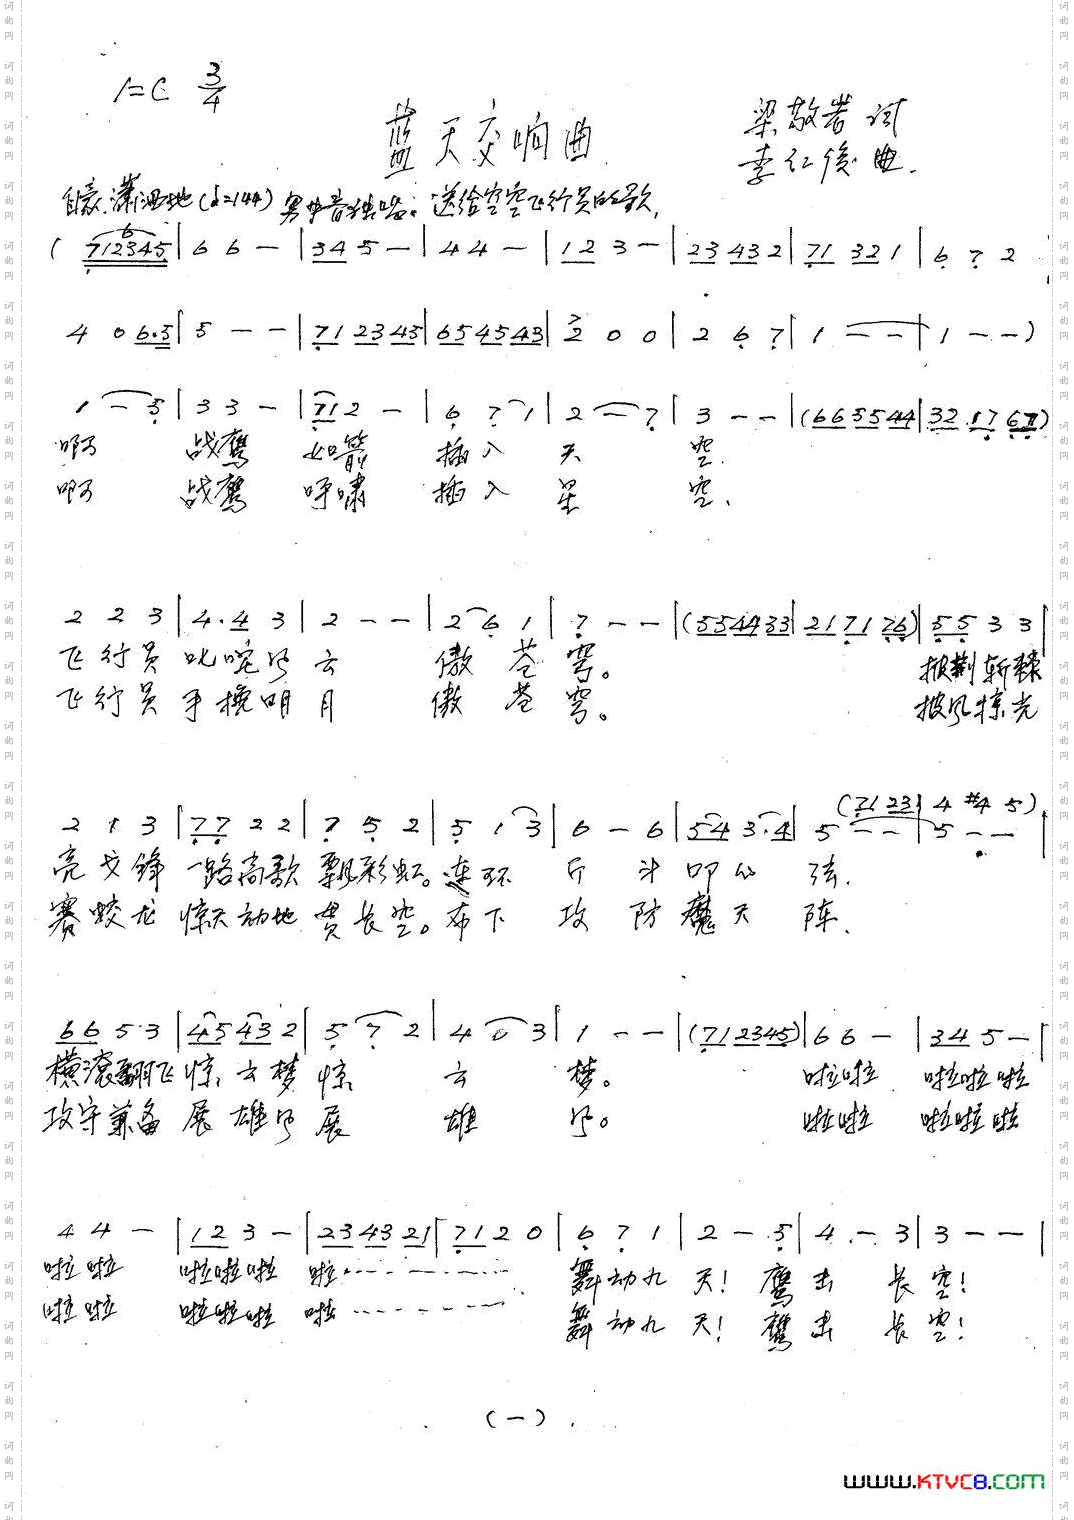 1=C 3/4
蓝天交响曲
梁敬岩 词
李红俊 曲.
自豪.潇洒地(♩=144) 男中音独唱: 送给空军飞行员的歌.
( 712345 | 6 6 - | 345 - | 4 4 - | 12 3 - | 23 43 2 | 71 32 1 | 6 7 2
4 0 6.5 | 5 - - | 71 23 45 | 65 45 43 | 2 0 0 | 2 6 7 | 1 - - | 1 - - )
1 - 5 | 3 3 - | 71 2 - | 6 7 1 | 2 - 7 | 3 - - | (66 55 44 | 32 17 67)
啊 战鹰 如箭 插入 天 空.
啊 战鹰 呼啸 插入 星 空.
2 2 3 | 4.4 3 | 2 - - | 2 6 1 | 7 - - | (55 44 33 | 21 71 76) | 55 3 3 |
飞行员 叱咤风云 傲苍穹。 披荆斩棘
飞行员 手挽明月 傲苍穹。 披风惊光
(71 23 | 4 #4 5)
2 1 3 | 77 2 2 | 7 5 2 | 5 1 3 | 6 - 6 | 54 3.4 | 5 - - | 5 - - |
亮戈锋 一路高歌 飘彩虹。连环 斤 斗 叩心 弦.
赛蛟龙 惊天动地 贯长空。布下 攻 防 魔天 阵.
66 5 3 | 45 43 2 | 5 7 2 | 4 0 3 | 1 - - | (71 23 45) | 6 6 - | 34 5 - |
横滚翻飞 惊云梦 惊 云 梦。 啦啦 啦啦啦
攻守兼备 展雄风 展 雄 风。 啦啦 啦啦啦
4 4 - | 12 3 - | 23 43 21 | 71 2 0 | 6 7 1 | 2 - 5 | 4 - 3 | 3 - - |
啦啦 啦啦啦 啦………… 舞动九 天! 鹰 击 长 空!
啦啦 啦啦啦 啦………… 舞动九 天! 鹰 击 长 空!
(一)
www.KTVC8.COM
词曲网